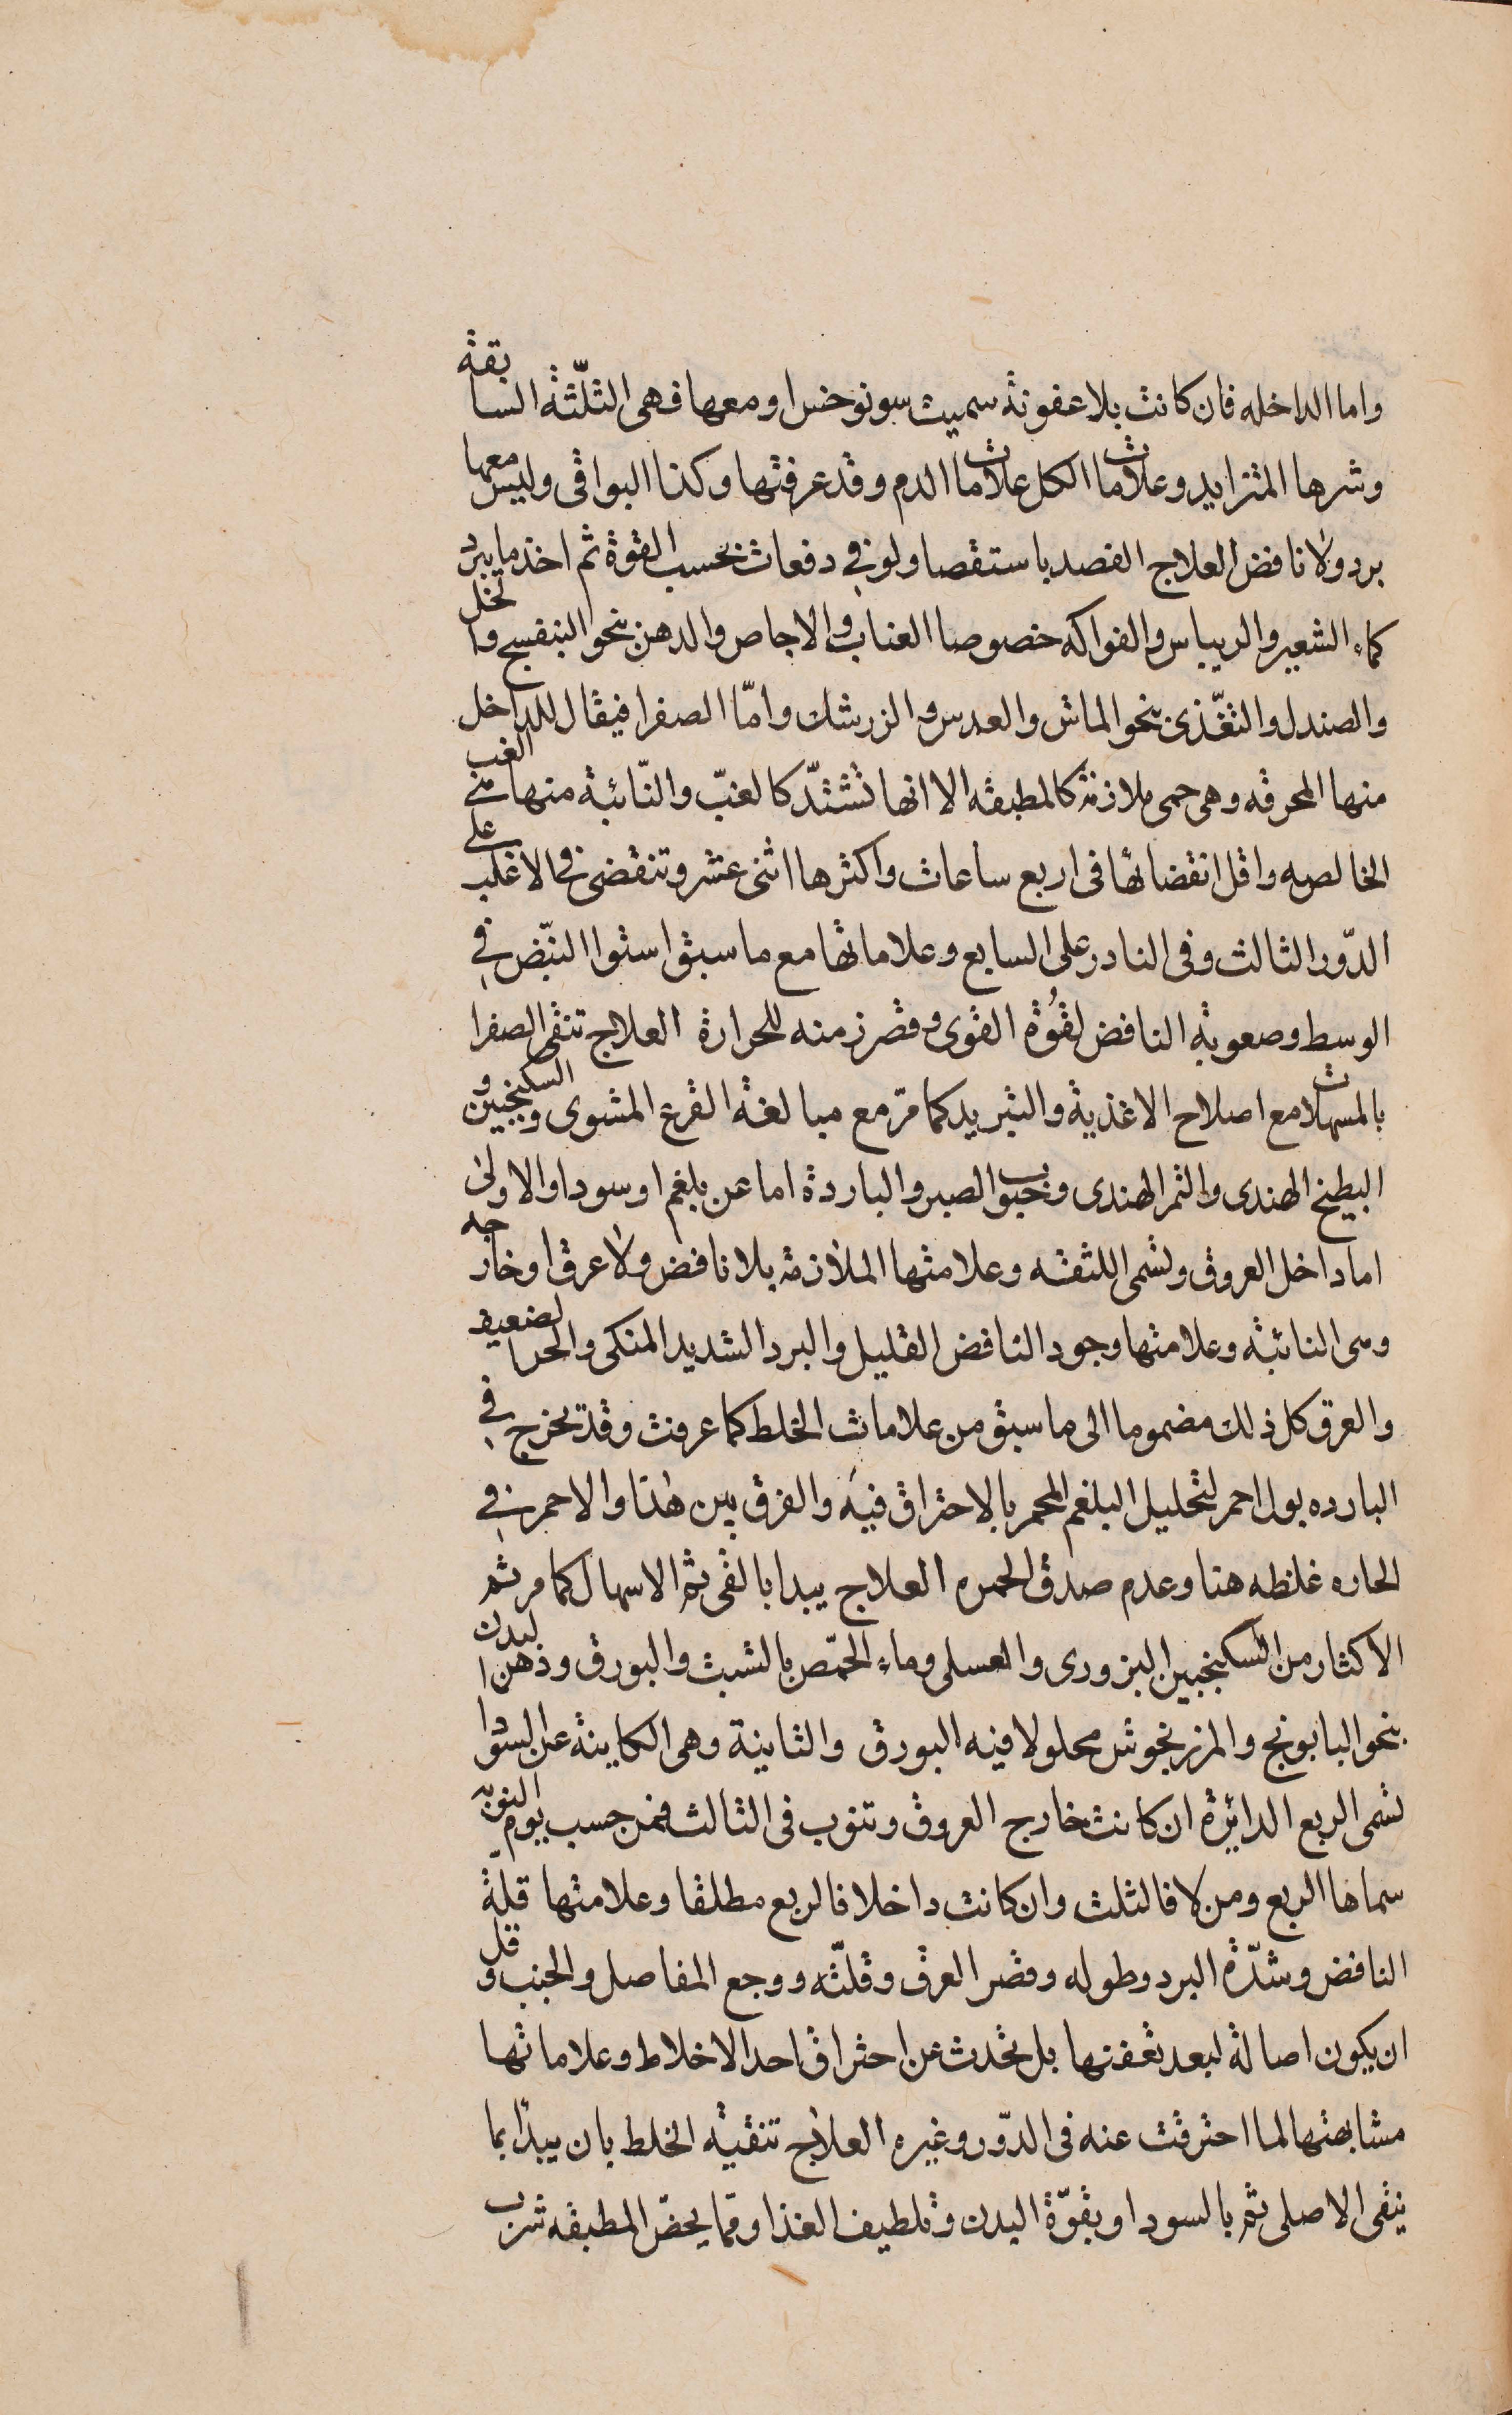 واما الداخله فان كانت بلا عفونة سميت سونوخس او معها فهى الثلّثة السابقة
وشرها المتزايد وعلامات الكل علامات الدم وقد عرفتها وكذا البواقى وليس معها
برد ولا نافض العلاج الفصد باستقصا ولو في دفعات بحسب القوة ثم اخذ ما يبرد
كماء الشعير والريباس والفواكه خصوصا العناب والاجاص والدهن بنحو البنفسج والخل
والصندل والتغّذى بنحو الماش والعدس والزرشك وامّا الصفرا فيقال للداخل
منها المحرقه وهى حمى ملازمة كالمطبقه الا انها تشتدّ كالغبّ والنّائبة منها هي الغب
الخالصه واقل انقضائها فى اربع ساعات واكثرها اثنى عشر وتنقضى فى الاغلب على
الدّور الثالث وفى النادر على السابع وعلاماتها مع ما سبق استوا النبّض في
الوسط وصعوبة النافض لقُوة القوى وقصر زمنه للحرارة العلاج تنقى الصفرا
بالمسهلات مع اصلاح الاغذية والتبريد كما مرّ مع مبالغة القرع المشوى والسكنجبين و
البطيخ الهندى والتمر الهندى وحبوب الصبر والباردة اما عن بلغم او سودا والاولى
اما داخل العروق وتسمى اللثقه وعلامتها الملازمة بلا نافض ولا عرق او خارجه
وسى النائبة وعلامتها وجود النافض القليل والبرد الشديد المنكى والحر الضعيف
والعرق كل ذلك مضموما الى ما سبق من علامات الخلط كما عرفت وقد تخرج في
البارده بول احمر لتحليل البلغم المحمر بالاحتراق فيه والفرق بين هذا والاحمر في
الحاره غلظه هنا وعدم صدق الحمره العلاج يبدا بالقى ثم الاسهال كما مر ثم
الاكثار من السكنجبين البزورى والعسلى وماء الحمّص بالشبث والبورق ودهن البدن
بنحو البابونج والمرزنجوش محلولا فيه البورق والثانية وهى الكاينة عن السودا
تسمى الربع الدائرة ان كانت خارج العروق وتنوب فى الثالث فمن حسب يوم النوبة
سماها الربع ومن لا فالثلث وان كانت داخلا فالربع مطلقا وعلامتها قلة
النافض وشدّة البرد وطوله وقصر العرق وقلّته ووجع المفاصل والجنب وقل
ان يكون اصالة لبعد تعفنها بل تحدث عن احتراق احد الاخلاط وعلاماتها
مشابهتها لما احترقت عنه فى الدّور وغيره العلاج تنقية الخلط بان يبدا بما
ينقى الاصلى ثم بالسودا وبقوّة البدن وتلطيف الغذا ومما يخصّ المطبقه شرب